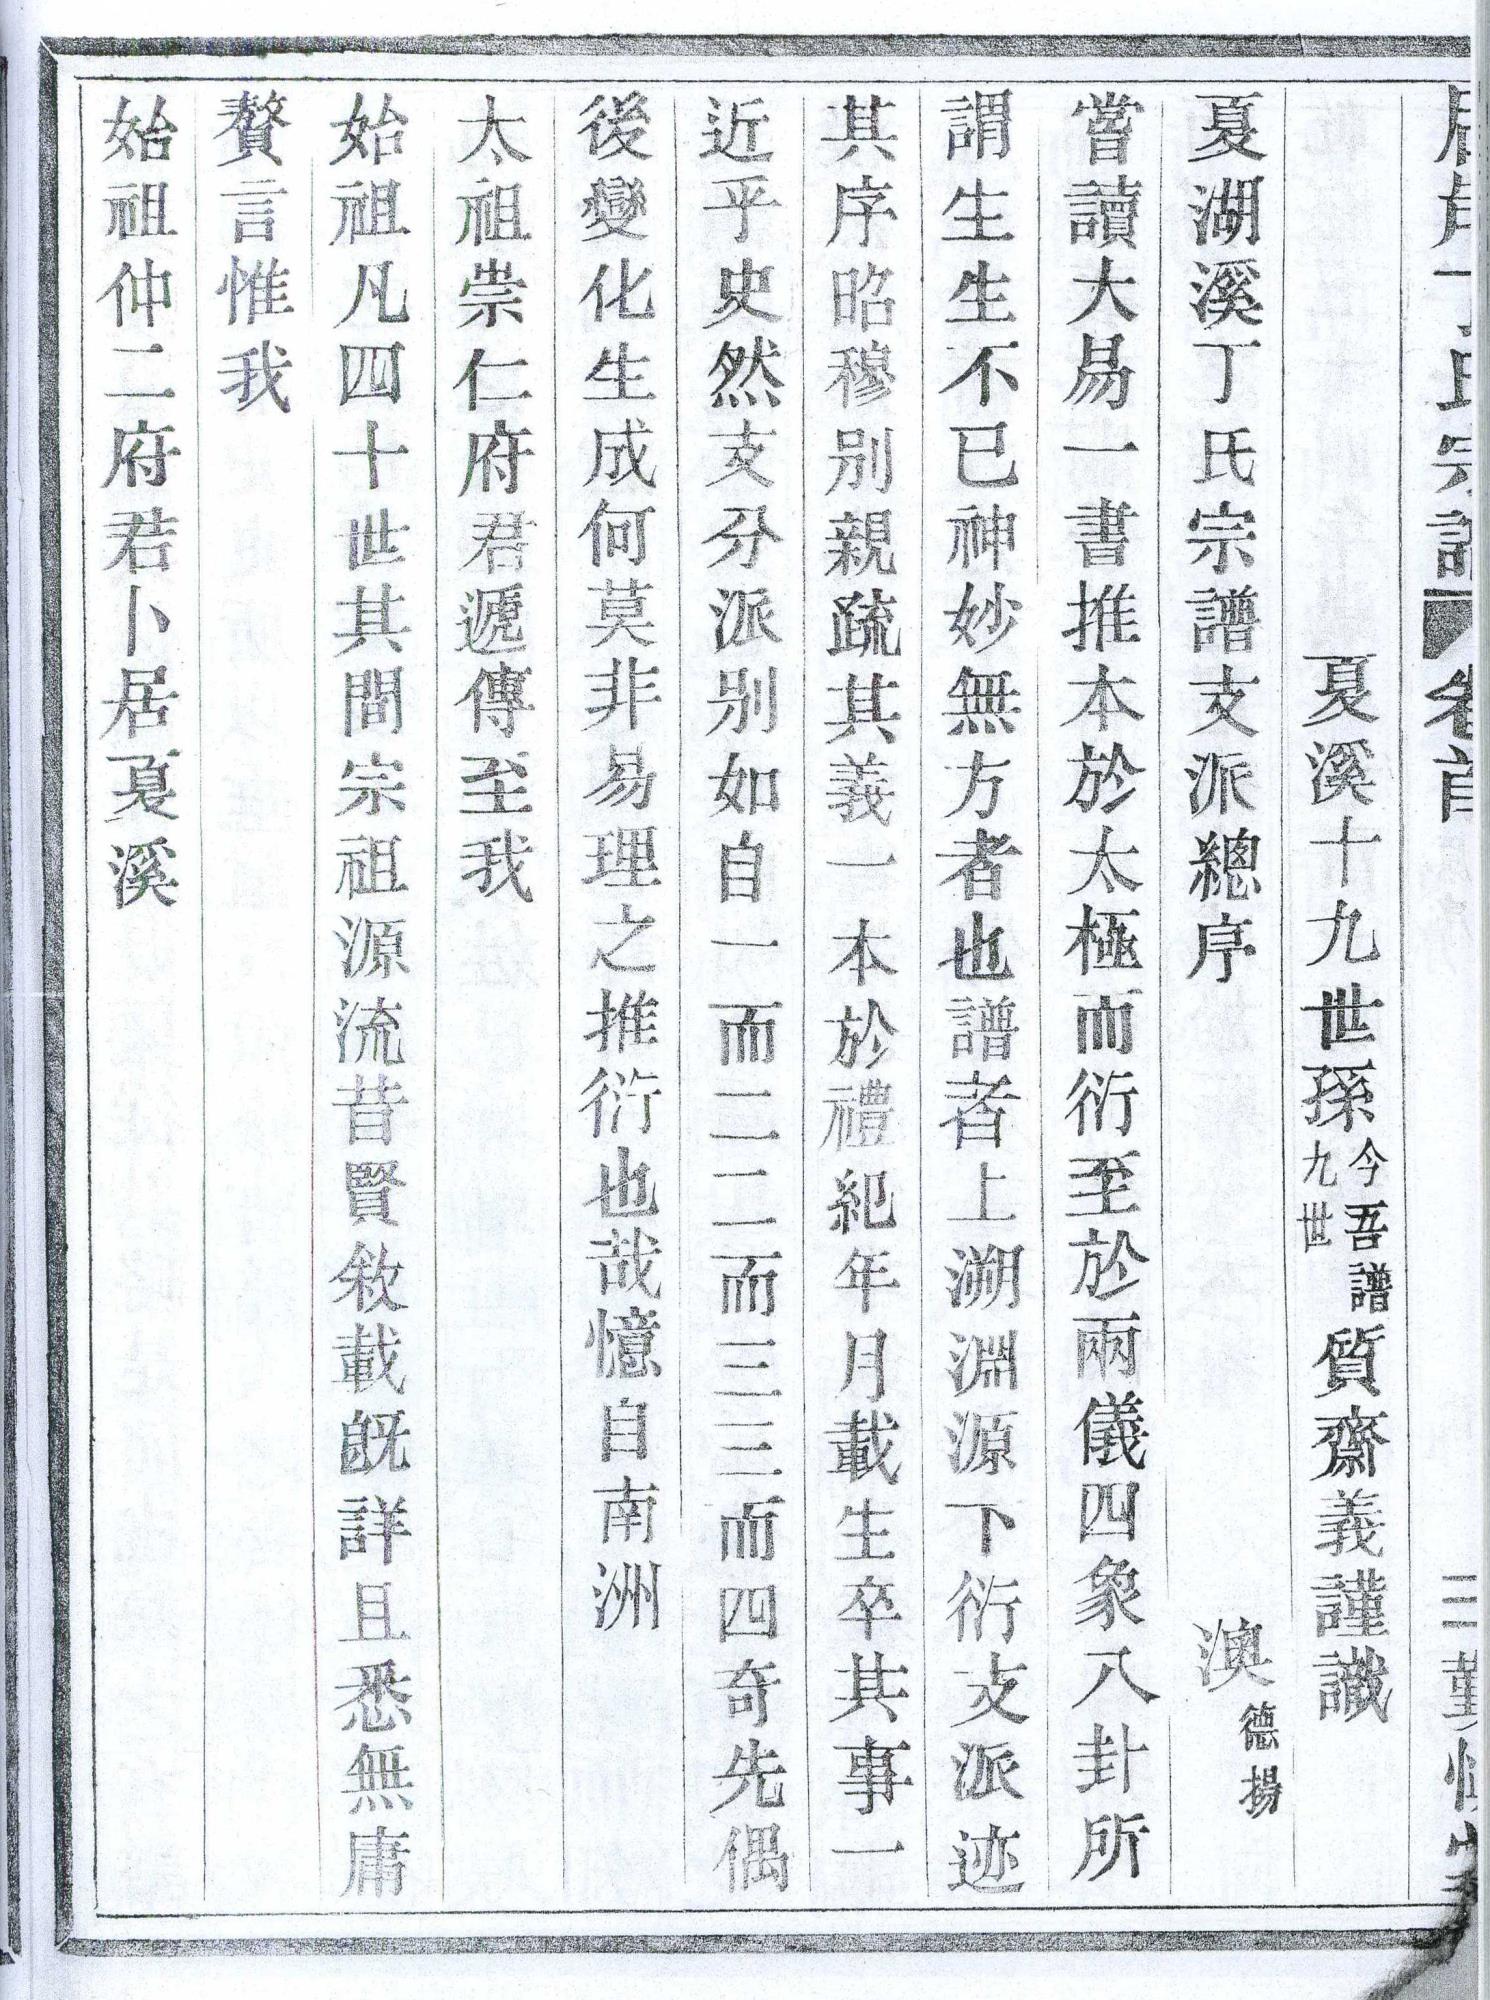 氏宗譜 卷首 三
夏溪十九世孫今吾譜九世質齋義謹識
夏湖溪丁氏宗譜支派總序 澳德揚
嘗讀大易一書推本於太極而衍至於兩儀四象八卦所
謂生生不已神妙無方者也譜者上溯淵源下衍支派迹
其序昭穆別親疏其義一本於禮紀年月載生卒其事一
近乎史然支分派別如自一而二二而三三而四奇先偶
後變化生成何莫非易理之推衍也哉憶自南洲
太祖崇仁府君遞傳至我
始祖凡四十世其間宗祖源流昔賢敘載既詳且悉無庸
贅言惟我
始祖仲二府君卜居夏溪